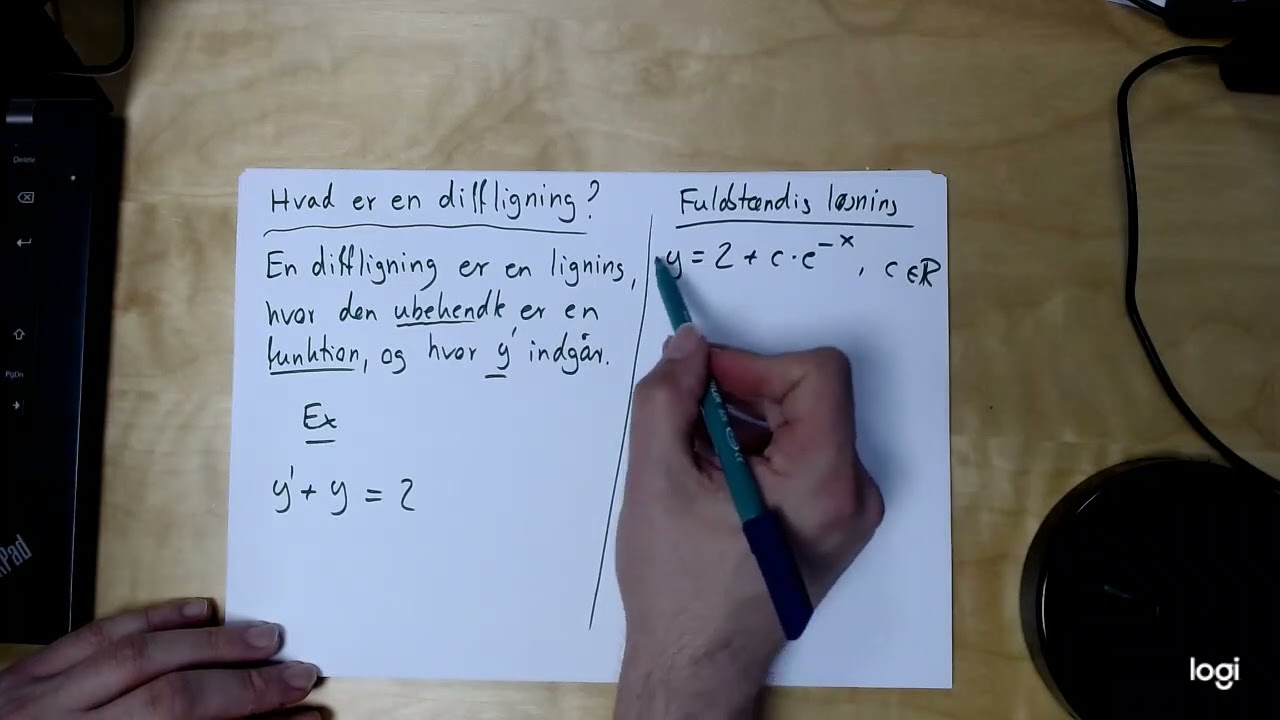 Hvad er en diffligning?
En diffligning er en ligning,
hvor den ubekendt er en
funktion, og hvor y' indgår.
Ex
y' + y = 2
Fuldstændig løsning
y = 2 + c · e^{-x}, c ∈ ℝ
Delete
PgDn
Pad
logi